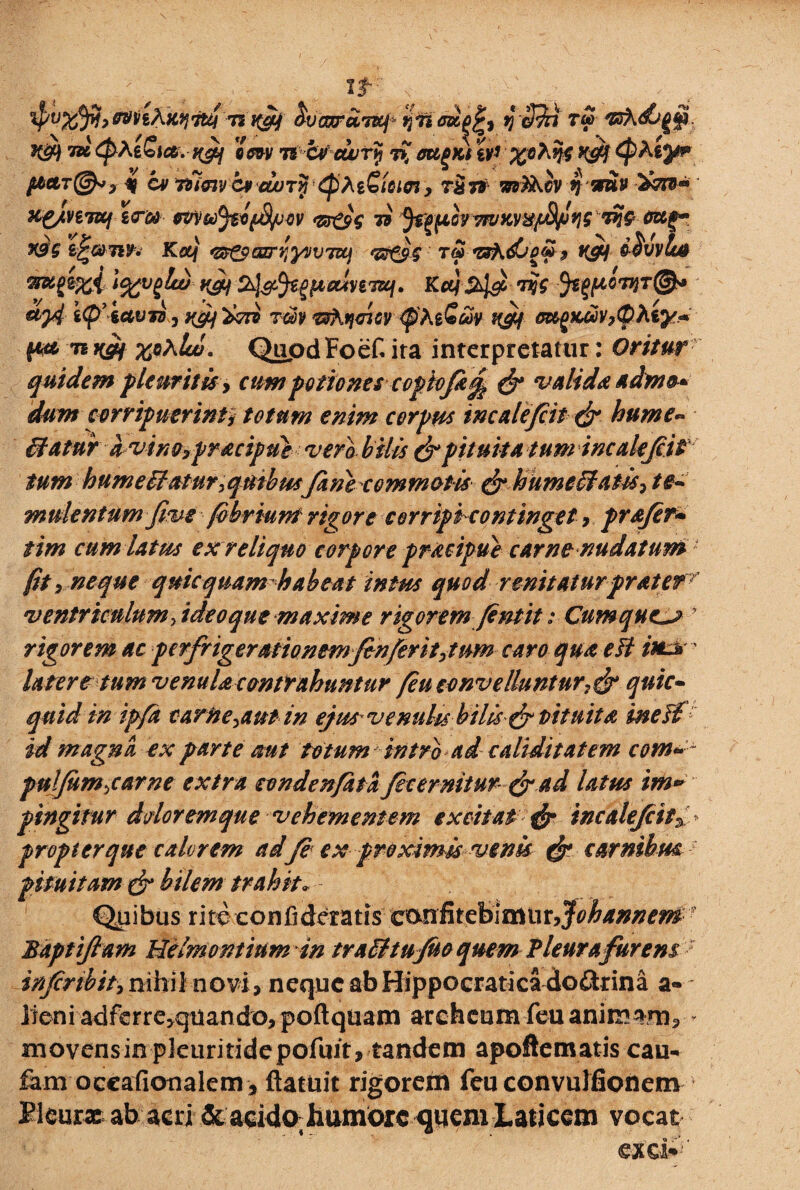 15
ψυχθῇ, συνέλκηταί τι καὶ δυσπαται· ἤτι σαρξ, ἢ ἐπὶ τῷ πλευρῷ
καὶ τὰ φλέβια. καὶ ὅσον τι ἐν αὐτῇ τῇ σαρκὶ ἐνι χολῆς καὶ φλέγ-
ματ@, ἢ ἐν τοῖσιν ἐν αὐτῇ φλεβίοισι, τοῦτο πολλὸν ἢ πᾶν ἀπο-
κρίνεται ἔσω συνωθεόμενον πρὸς τὸ θερμὸν πυκνουμένης τῆς σαρ-
κὸς ἔξωτεν. Καὶ προσπήγνυται πρὸς τῷ πλευρῷ, καὶ ὀδύνlω
παρέχει ἰχυρlω καὶ διαθερμαίνεται. Καὶ διὰ τῆς θερμότητ@
ἄγει ἐφ' ἑαυτὸ, καὶ ἀπὸ τῶν πλησίον φλεβῶν καὶ σαρκῶν, φλέγ-
μα τε καὶ χολlω. Quod Foës. ita interpretatur: Oritur
quidem pleuritis, cum potiones copiosæq; & valida admo-
dum corripuerint, totum enim corpus incalescit & hume-
ctatur à vino, præcipuè verò bilis & pituita tum incalescit
tum humectatur, quibus sanè commotis & humectatis, te-
mulentum sive sobrium rigore corripi continget, præser-
tim cum latus ex reliquo corpore præcipuè carne nudatum
sit, neque quicquam habeat intus quod renitatur præter
ventriculum, ideoque maxime rigorem sentit: Cumque
rigorem ac perfrigerationem senserit, tum caro quæ est in
latere tum venulæ contrahuntur seu convelluntur, & quic-
quid in ipsa carne, aut in ejus venulis bilis & pituitæ inest
id magnâ ex parte aut totum intrò ad caliditatem com-
pulsum, carne extra condensatâ secernitur & ad latus im-
pingitur doloremque vehementem excitat & incalescit,
propterque calorem ad se ex proximis venis & carnibus
pituitam & bilem trahit.
Quibus ritè consideratis confitebimur, Johannem
Baptistam Helmontium in tractu suo quem Pleura furens
inscribit, nihil novi, neque ab Hippocraticâ doctrinâ a-
lieni adferre, quando, postquam archeum seu animam,
movens in pleuritide posuit, tandem apostematis cau-
sam occasionalem, statuit rigorem seu convulsionem
Pleuræ ab acri & acido humore quem Laticem vocat
exci-